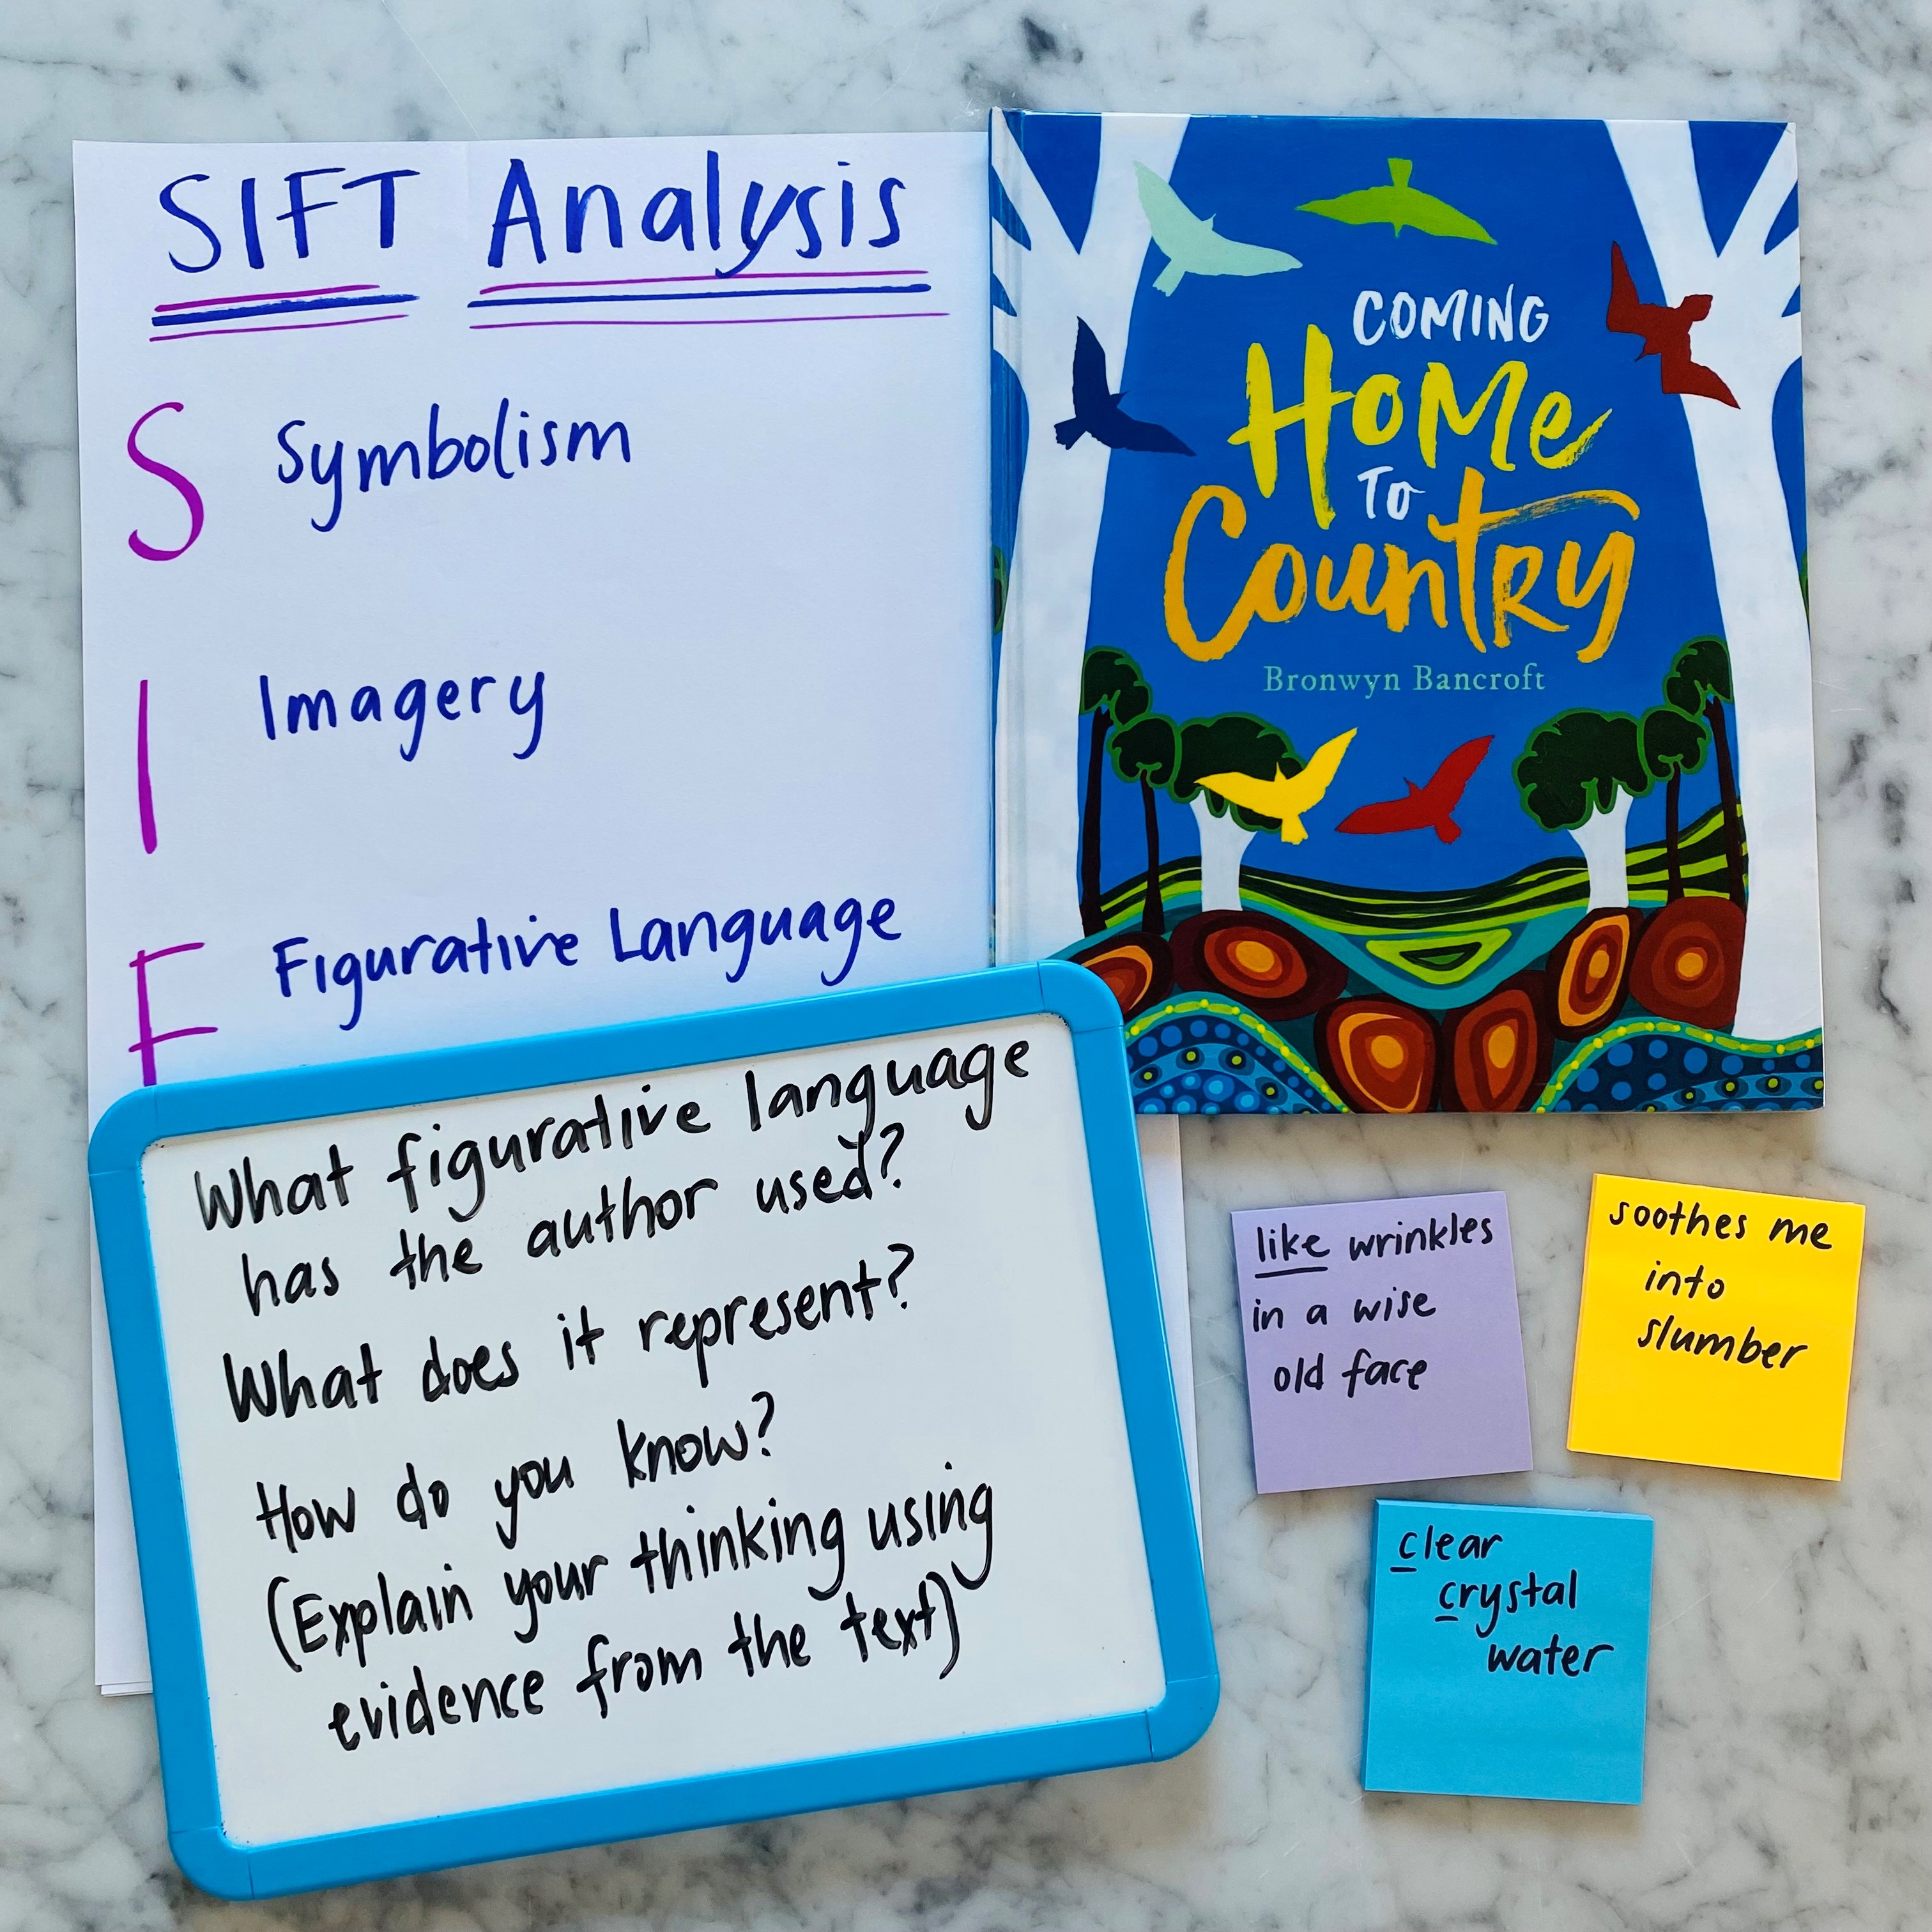 SIFT Analysis
S Symbolism
I Imagery
F Figurative Language
COMING
HOME
TO
COUNTRY
Bronwyn Bancroft
What figurative language
has the author used?
What does it represent?
How do you know?
(Explain your thinking using
evidence from the text)
like wrinkles
in a wise
old face
soothes me
into
slumber
clear
crystal
water